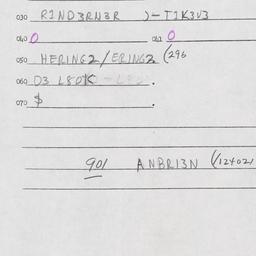 030 R1ND3RN3R )-T1K3V3
040 0 042 0
050 HERING2/ERING2 (296
060 D3 L80K .
070 $ .
901 ANBRI3N (/124021